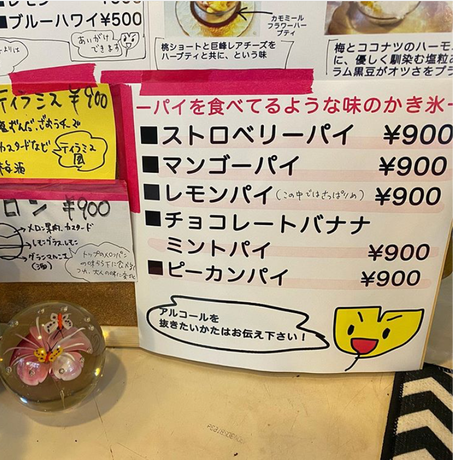 ¥500
■ブルーハワイ¥500
あいがけ
できます
カモミール
フラワーハー
ブティ
桃ショートと巨峰レアチーズを
ハーブティと共に、という味
梅とココナツのハーモ
に、優しく馴染む塩粒あ
ラム黒豆がオツさをプラ
ティラミス ¥900
カスタードなど
ティラミス
風
ロン ¥900
メロン果肉、カスタード
レモングラス、レモン
ーパイを食べてるような味のかき氷ー
■ストロベリーパイ ¥900
■マンゴーパイ ¥900
■レモンパイ(この中ではさっぱりめ) ¥900
■チョコレートバナナ
ミントパイ ¥900
■ピーカンパイ ¥900
アルコールを
抜きたいかたはお伝え下さい!